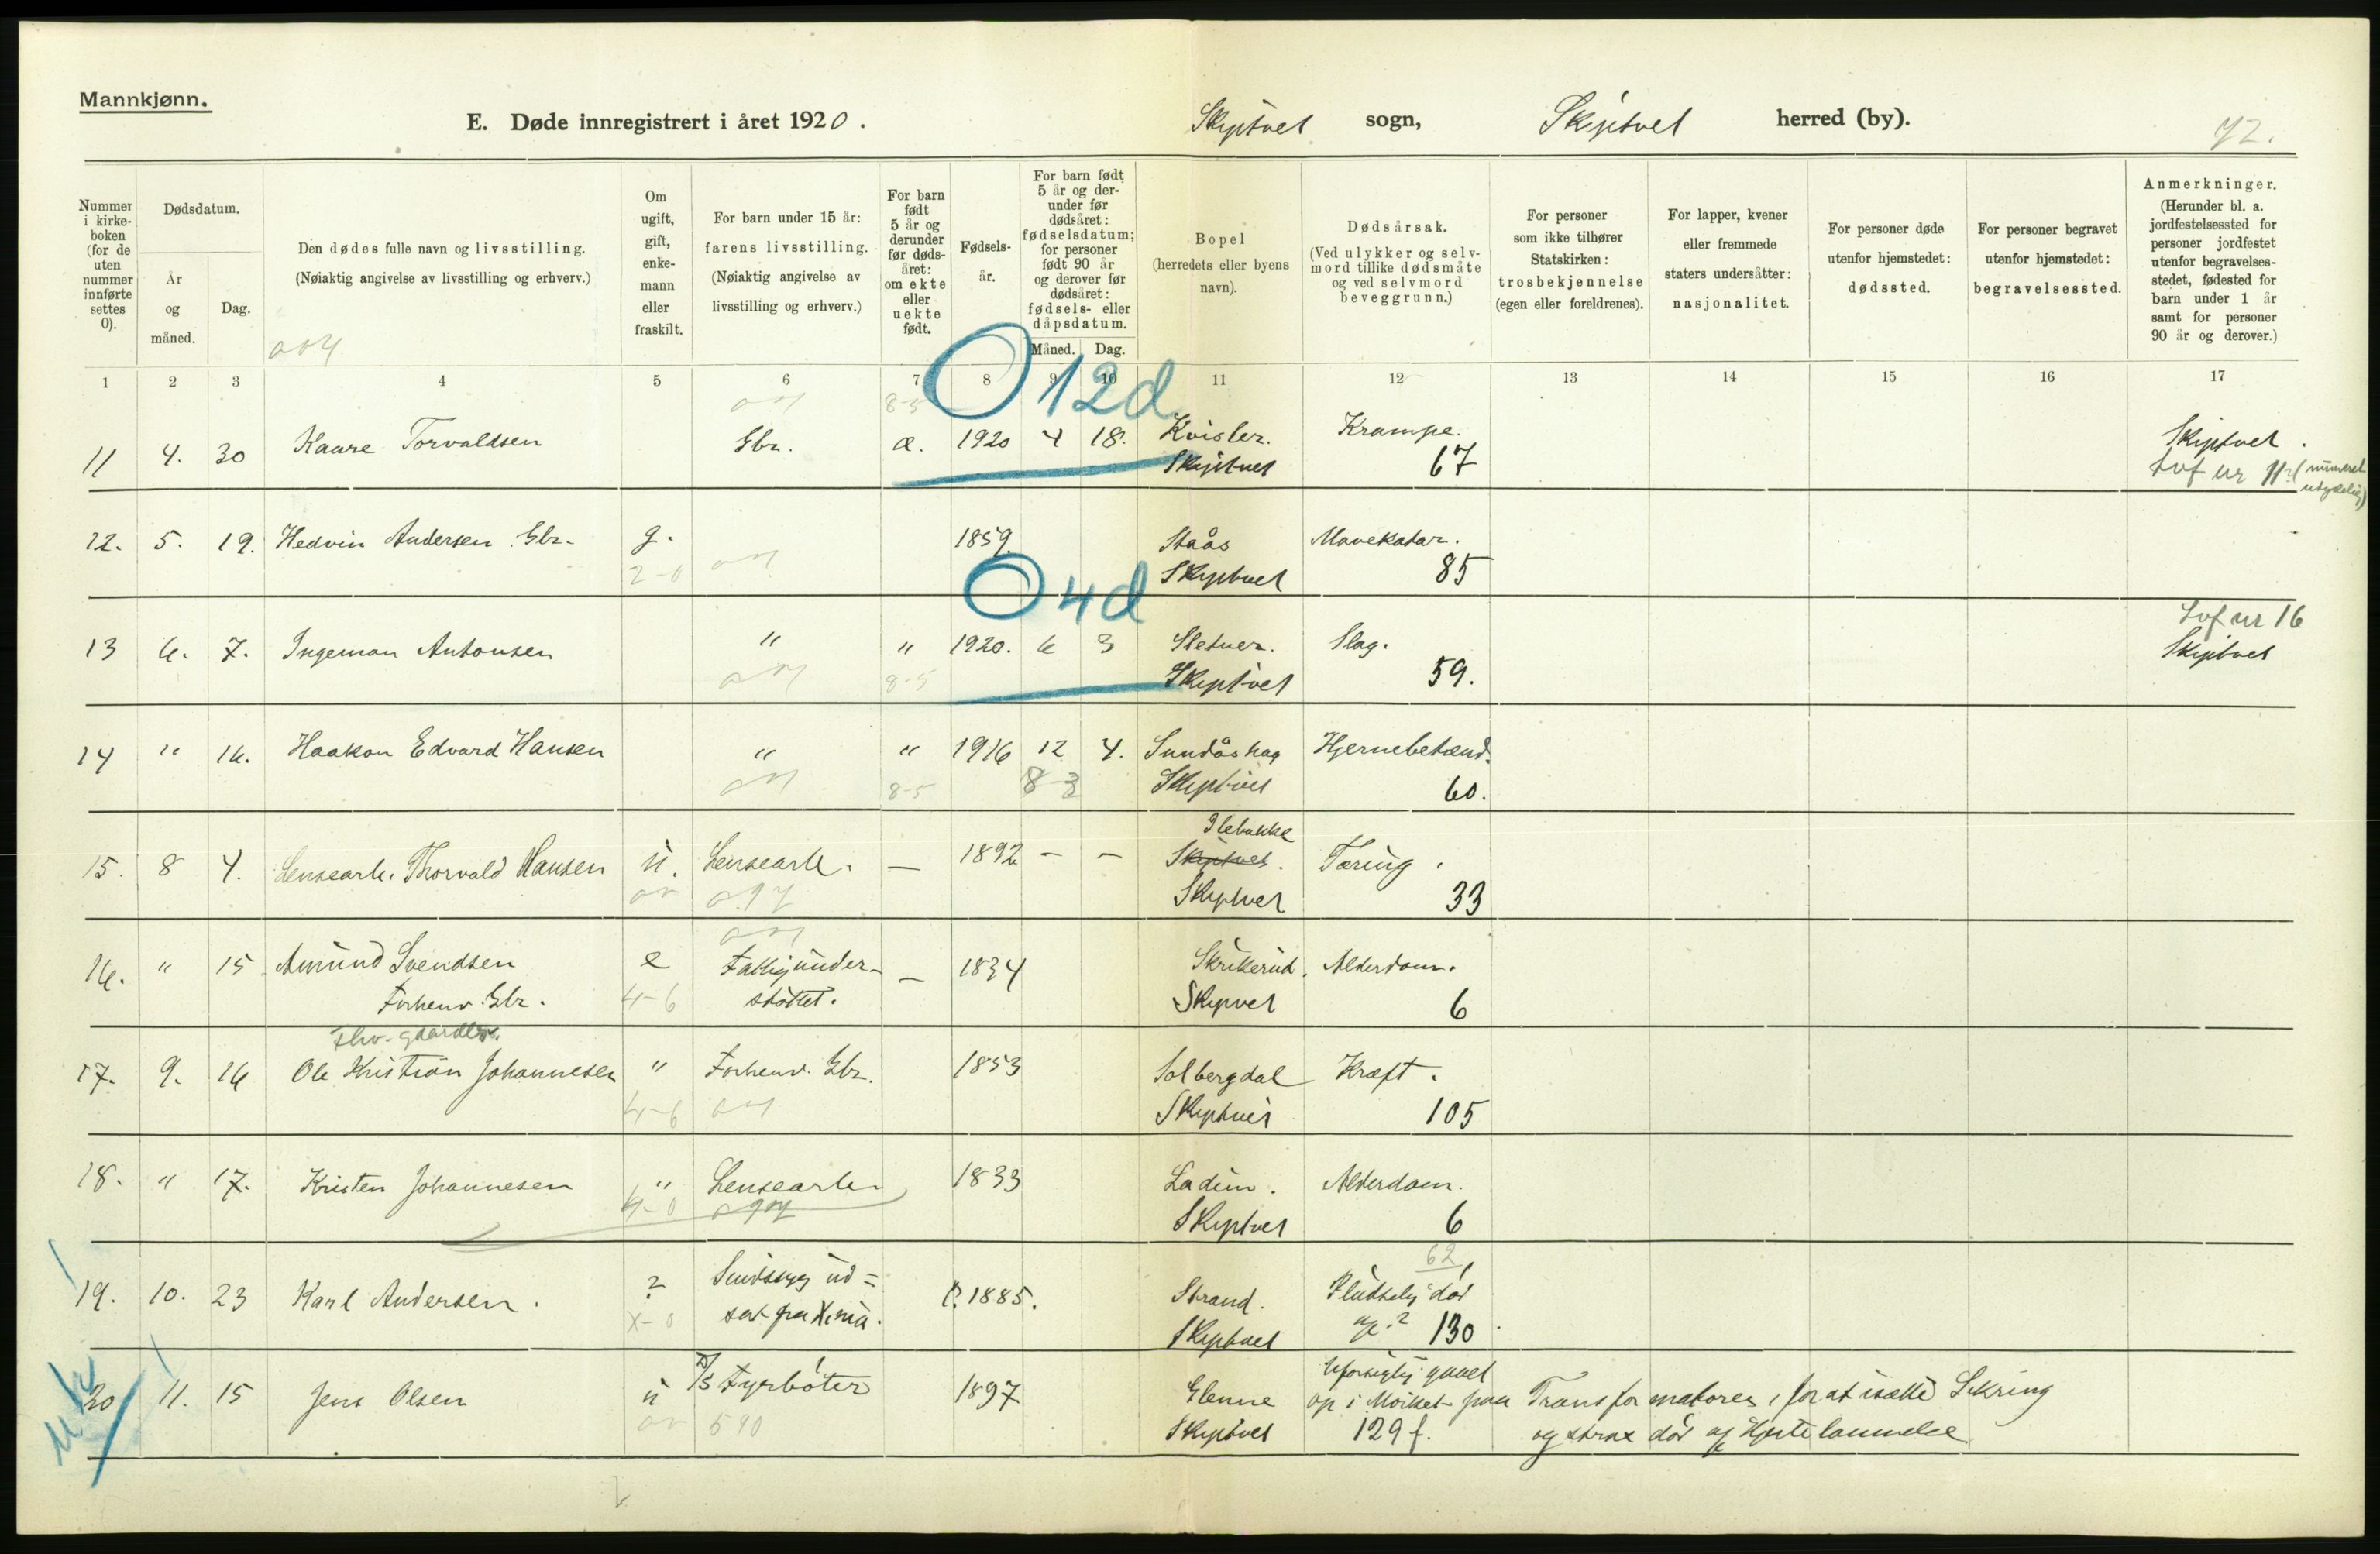 Mannkjønn.
E. Døde innregistrert i året 1920.
Skiptvet sogn, Skiptvet herred (by).
72.
Nummer i kirkeboken (for de uten nummer innførte settes 0).
Dødsdatum.
År og måned.
Dag.
Den dødes fulle navn og livsstilling.
(Nøiaktig angivelse av livsstilling og erhverv.)
Om ugift, gift, enkemann eller fraskilt.
For barn under 15 år: farens livsstilling.
(Nøiaktig angivelse av livsstilling og erhverv.)
For barn født 5 år og derunder før dødsåret: om ekte eller uekte født.
Fødselsår.
For barn født 5 år og derunder før dødsåret: fødselsdatum; for personer født 90 år og derover før dødsåret: fødsels- eller dåpsdatum.
Måned. Dag.
Bopel
(herredets eller byens navn).
Dødsårsak.
(Ved ulykker og selvmord tillike dødsmåte og ved selvmord beveggrunn.)
For personer som ikke tilhører Statskirken: trosbekjennelse (egen eller foreldrenes).
For lapper, kvener eller fremmede staters undersåtter: nasjonalitet.
For personer døde utenfor hjemstedet: dødssted.
For personer begravet utenfor hjemstedet: begravelsessted.
Anmerkninger.
(Herunder bl. a. jordfestelsessted for personer jordfestet utenfor begravelsesstedet, fødested for barn under 1 år samt for personer 90 år og derover.)
1 2 3 4 5 6 7 8 9 10 11 12 13 14 15 16 17
8-5 0 12d
11 4. 30 Kaare Torvaldsen Gbr. æ. 1920 4 18. Kvisler. Krampe. Skiptvet.
Skiptvet 67
12. 5. 19. Hedvin Andersen Gbr. g. 1859 Staås Mavekatar.
2-0 Skiptvet 85
0 4d
13 6. 7. Ingeman Antonsen " " 1920. 6 3 Sletner. Slag. Skiptvet
8-5 Skiptvet 59.
14 " 16. Haakon Edvard Hansen " " 1916 12 4. Sundåshag Hjernebetænd.
8-5 8 3 Skiptvet 60.
15. 8 4. Lensearb. Thorvald Hansen u. Lensearb. — 1892 - - Skiptvet. Tæring.
Skiptvet 33
16. " 15 Amund Svendsen e Fattigunder- — 1834 Skrikerud. Alderdom.
Forhenv. Gbr. 4-6 støttet. Skipvet 6
Fhv. gaardbr.
17. 9. 16 Ole Kristian Johannesen " Forhenv. Gbr. 1853 Solbergdal Kræft.
4-6 Skiptvet 105
18. " 17. Kristen Johannesen " Lensearb. 1833 Ladim. Alderdom.
4-0 Skiptvet 6
62
19. 10. 23 Karl Andersen. ? Sindssyg ud= ?. 1885. Strand. Pludselig død
x-0 sat fra Xnia. Skiptvet af? 130
20 11. 15 Jens Olsen u Fyrbøter 1897 Glenne Uforsigtig gaaet
op i Mørket paa Transformatoren, for at isætte Sikring
590 Skiptvet 129 f. og strax død af Hjertelammelse